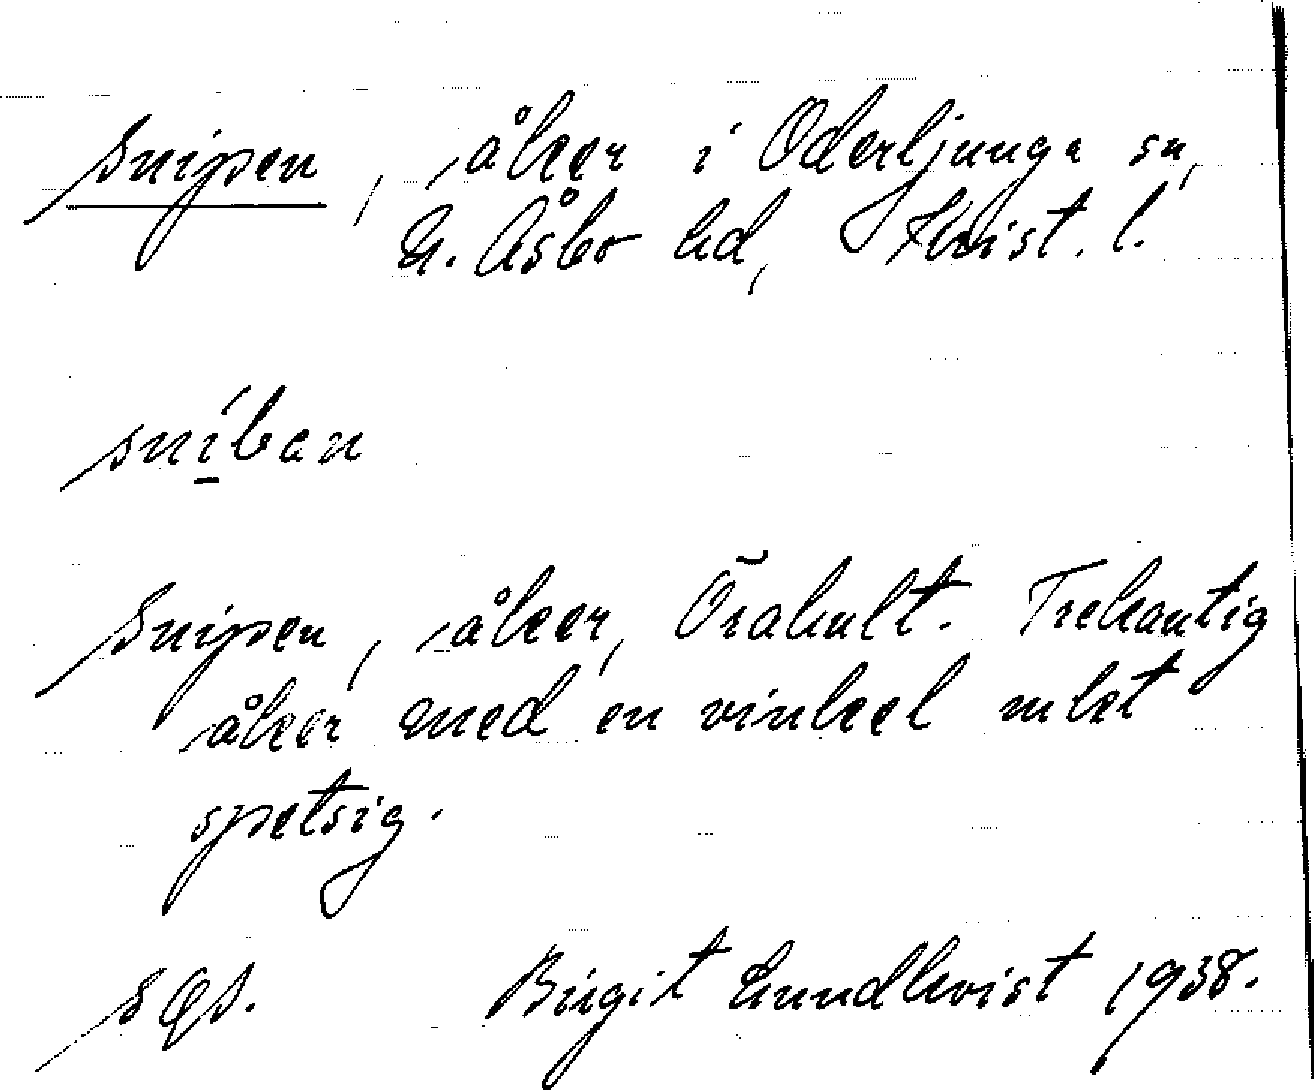 Snipen, åker i Oderljunga sn,
N. Åsbo hd, Krist. l.
sníban
Snipen, åker, Örahult. Trekantig
åker med en vinkel mkt
spetsig.
Birgit Lundkvist 1938.